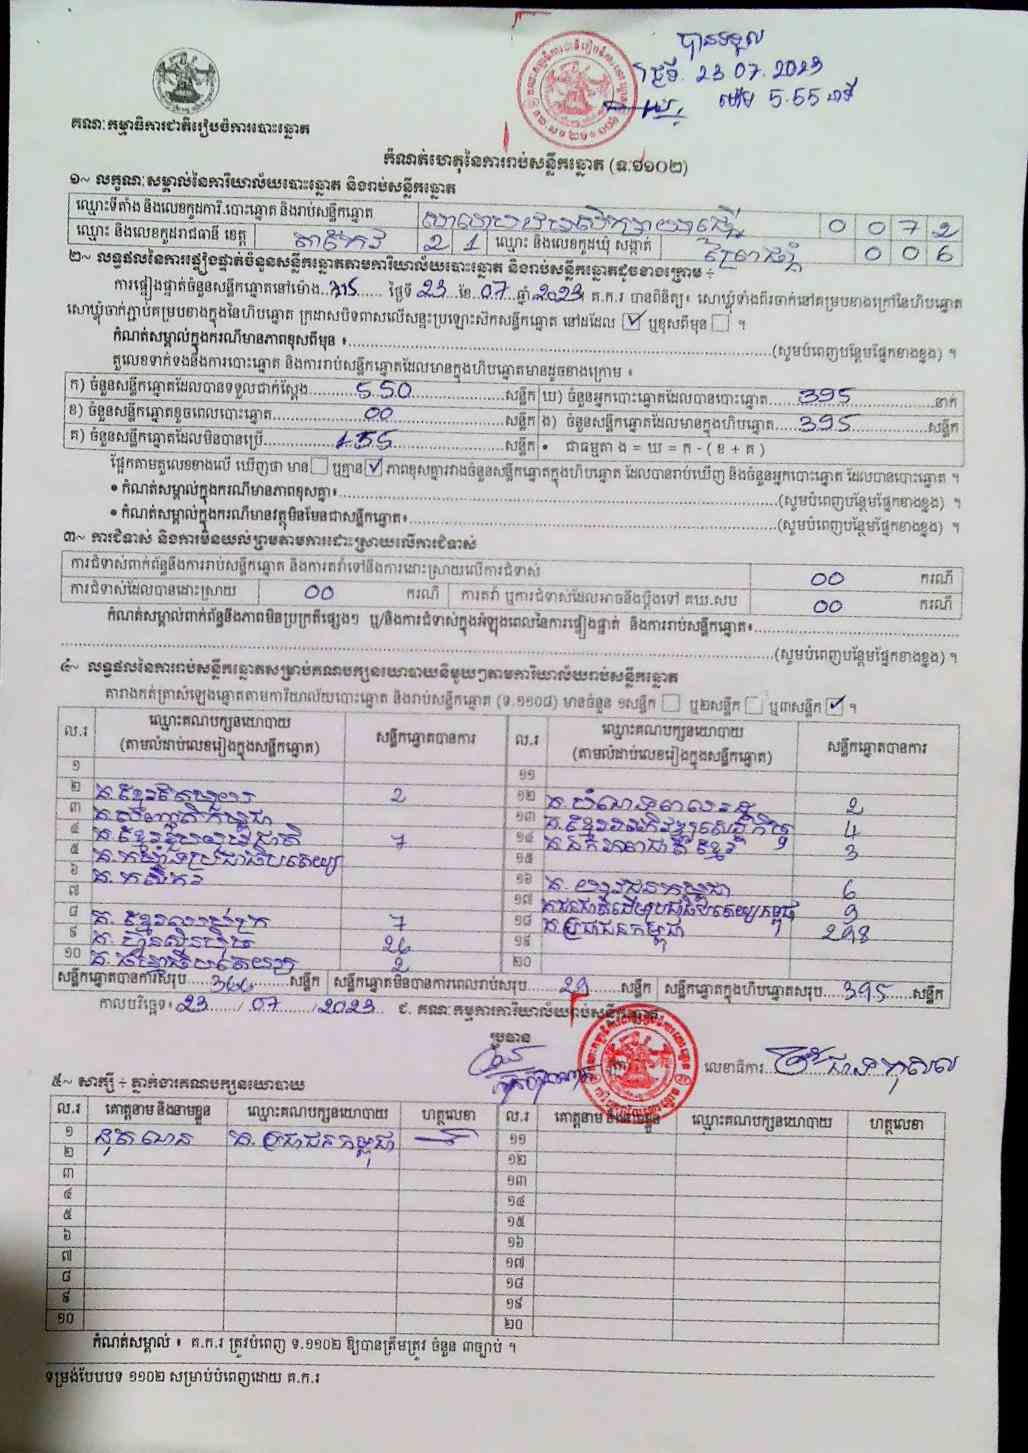 បានទទួល
ថ្ងៃទី. 23 07. 2023
ម៉ោង 5.55 នាទី
គណៈកម្មាធិការជាតិរៀបចំការបោះឆ្នោត
កំណត់ហេតុនៃការរាប់សន្លឹកឆ្នោត (ទ.១១០២)
១~ លក្ខណៈសម្គាល់នៃការិយាល័យបោះឆ្នោត និងរាប់សន្លឹកឆ្នោត
ឈ្មោះទីតាំង និងលេខកូដការិ.បោះឆ្នោត និងរាប់សន្លឹកឆ្នោត 0 0 7 2
ឈ្មោះ និងលេខកូដរាជធានី ខេត្ត តាកែវ 2 1 ឈ្មោះ និងលេខកូដឃុំ សង្កាត់ 0 0 6
២~ លទ្ធផលនៃការផ្ទៀងផ្ទាត់ចំនួនសន្លឹកឆ្នោតតាមការិយាល័យបោះឆ្នោត និងរាប់សន្លឹកឆ្នោតដូចខាងក្រោម ÷
ការផ្ទៀងផ្ទាត់ចំនួនសន្លឹកឆ្នោតនៅម៉ោង. ថ្ងៃទី 23 ខែ 07 ឆ្នាំ 2023 គ.ក.រ បានពិនិត្យ៖ សោឃ្លុំទាំងពីរចាក់នៅគម្របខាងក្រៅនៃហិបឆ្នោត
សោឃ្លុំចាក់ភ្ជាប់គម្របខាងក្នុងនៃហិបឆ្នោត ក្រដាសបិទពាសលើសន្ទះប្រឡោះស៊កសន្លឹកឆ្នោត នៅដដែល ☑ ឬខុសពីមុន ☐ ។
កំណត់សម្គាល់ក្នុងករណីមានភាពខុសពីមុន ៖ (សូមបំពេញបន្ថែមផ្នែកខាងខ្នង) ។
តួលេខទាក់ទងនឹងការបោះឆ្នោត និងការរាប់សន្លឹកឆ្នោតដែលមានក្នុងហិបឆ្នោតមានដូចខាងក្រោម ៖
ក) ចំនួនសន្លឹកឆ្នោតដែលបានទទួលជាក់ស្តែង 550 សន្លឹក ឃ) ចំនួនអ្នកបោះឆ្នោតដែលបានបោះឆ្នោត 395 នាក់
ខ) ចំនួនសន្លឹកឆ្នោតខូចពេលបោះឆ្នោត 00 សន្លឹក ង) ចំនួនសន្លឹកឆ្នោតដែលមានក្នុងហិបឆ្នោត 395 សន្លឹក
គ) ចំនួនសន្លឹកឆ្នោតដែលមិនបានប្រើ 155 សន្លឹក • ជាធម្មតា ង = ឃ = ក - ( ខ + គ )
ផ្អែកតាមតួលេខខាងលើ ឃើញថា មាន ☐ ឬគ្មាន ☑ ភាពខុសគ្នារវាងចំនួនសន្លឹកឆ្នោតក្នុងហិបឆ្នោត ដែលបានរាប់ឃើញ និងចំនួនអ្នកបោះឆ្នោត ដែលបានបោះឆ្នោត ។
• កំណត់សម្គាល់ក្នុងករណីមានភាពខុសគ្នា៖ (សូមបំពេញបន្ថែមផ្នែកខាងខ្នង) ។
• កំណត់សម្គាល់ក្នុងករណីមានវត្ថុមិនមែនជាសន្លឹកឆ្នោត៖ (សូមបំពេញបន្ថែមផ្នែកខាងខ្នង) ។
៣~ ការជំទាស់ និងការមិនយល់ព្រមតាមការដោះស្រាយលើការជំទាស់
ការជំទាស់ពាក់ព័ន្ធនឹងការរាប់សន្លឹកឆ្នោត និងការតវ៉ាទៅនឹងការដោះស្រាយលើការជំទាស់ 00 ករណី
ការជំទាស់ដែលបានដោះស្រាយ 00 ករណី ការតវ៉ា ឬការជំទាស់ដែលអាចនឹងប្តឹងទៅ គឃ.សប 00 ករណី
កំណត់សម្គាល់ពាក់ព័ន្ធនឹងភាពមិនប្រក្រតីផ្សេងៗ ឬ/និងការជំទាស់ក្នុងអំឡុងពេលនៃការផ្ទៀងផ្ទាត់ និងការរាប់សន្លឹកឆ្នោត៖
(សូមបំពេញបន្ថែមផ្នែកខាងខ្នង) ។
៤~ លទ្ធផលនៃការរាប់សន្លឹកឆ្នោតសម្រាប់គណបក្សនយោបាយនីមួយៗតាមការិយាល័យរាប់សន្លឹកឆ្នោត
តារាងកត់ត្រាសំឡេងឆ្នោតតាមការិយាល័យបោះឆ្នោត និងរាប់សន្លឹកឆ្នោត (ទ.១១០៨) មានចំនួន ១សន្លឹក ☐ ឬ២សន្លឹក ☐ ឬ៣សន្លឹក ☑ ។
ល.រ ឈ្មោះគណបក្សនយោបាយ (តាមលំដាប់លេខរៀងក្នុងសន្លឹកឆ្នោត) សន្លឹកឆ្នោតបានការ ល.រ ឈ្មោះគណបក្សនយោបាយ (តាមលំដាប់លេខរៀងក្នុងសន្លឹកឆ្នោត) សន្លឹកឆ្នោតបានការ
១ ១១
២ 2 ១២ 2
៣ ១៣ 4
៤ គ.ខ្មែររួបរួមជាតិ 7 ១៤ 3
៥ ១៥
៦ គ.កសិករ ១៦ គ. យុវជនកម្ពុជា 6
៧ ១៧ 9
៨ 7 ១៨ គ.ប្រជាជនកម្ពុជា 298
៩ គ. ហ៊្វុនស៊ិនប៉ិច 26 ១៩
១០ 2 ២០
សន្លឹកឆ្នោតបានការសរុប 366 សន្លឹក សន្លឹកឆ្នោតមិនបានការពេលរាប់សរុប 29 សន្លឹក សន្លឹកឆ្នោតក្នុងហិបឆ្នោតសរុប 395 សន្លឹក
កាលបរិច្ឆេទ៖ 23 / 07 / 2023 ជ. គណៈកម្មការការិយាល័យរាប់សន្លឹកឆ្នោត
ប្រធាន
លេខាធិការ
៥~ សាក្សី ÷ ភ្នាក់ងារគណបក្សនយោបាយ
ល.រ គោត្តនាម និងនាមខ្លួន ឈ្មោះគណបក្សនយោបាយ ហត្ថលេខា ល.រ គោត្តនាម និងនាមខ្លួន ឈ្មោះគណបក្សនយោបាយ ហត្ថលេខា
១ គ. ប្រជាជនកម្ពុជា ១១
២ ១២
៣ ១៣
៤ ១៤
៥ ១៥
៦ ១៦
៧ ១៧
៨ ១៨
៩ ១៩
១០ ២០
កំណត់សម្គាល់ ៖ គ.ក.រ ត្រូវបំពេញ ទ.១១០២ ឱ្យបានត្រឹមត្រូវ ចំនួន ៣ច្បាប់ ។
ទម្រង់បែបបទ ១១០២ សម្រាប់បំពេញដោយ គ.ក.រ